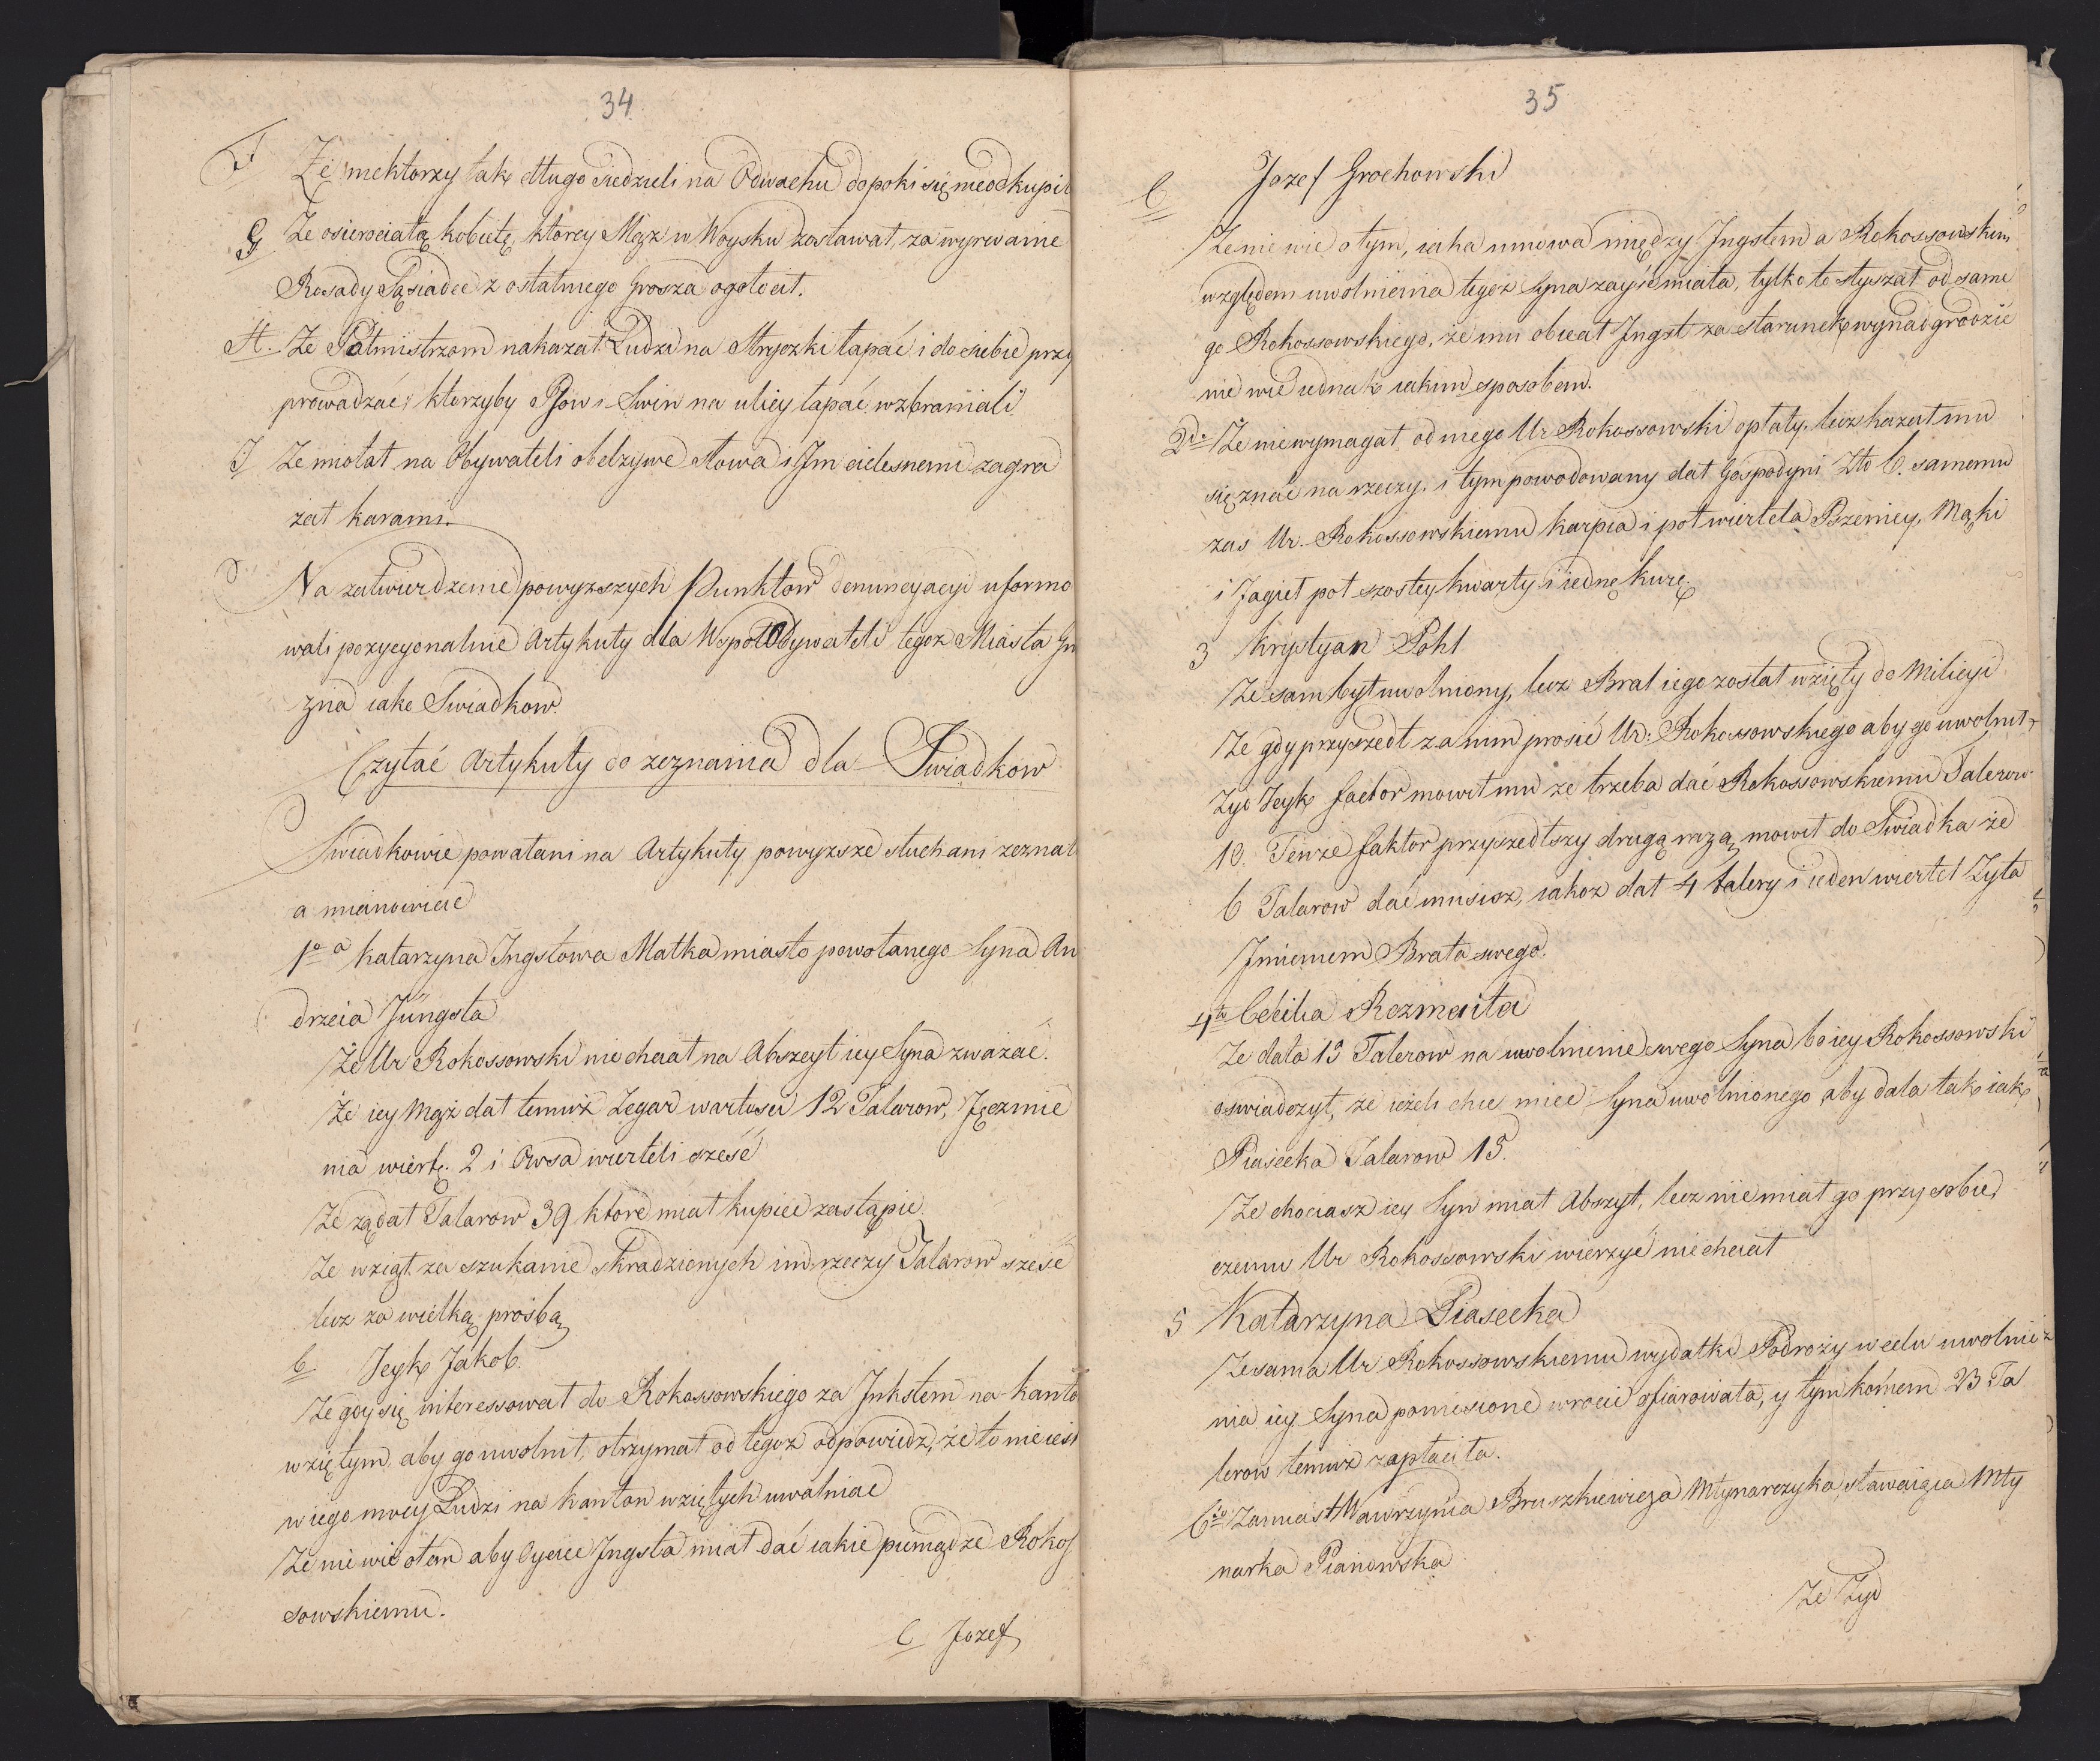 34
F Że niektorzy tak długo siedzieli na Odwachu dopoki się nieodkupil
G Ze osierociałą kobietę, ktorey Mąż w Woysku zostawał, za wyrwanie
Rosady Sąsiadce z ostatniego Grosza ogołocił.
H. Ze Ratmistrzom nakazał Ludzi na Stryczki łapać i do siebie przy
prowadzać, ktorzyby Psów i Swin na ulicy łapać wzbraniali
I Ze miotał na Obywateli obelzywe słowa i Im cielesnemi zagra
zał karami.
Na zatwierdzenie powyzszych Punktow denuncyacyi uformo
wali pozycyonalnie Artykuły dla WspołObywateli tegoz Miasta Gn
zna iako Swiadkow
Czytać Artykuły do zeznania dla Swiadkow
Swiadkowie powołani na Artykuły powyzsze słuchani zeznal
a mianowicie
1o a Katarzyna Ingstowa Matka miasto powołanego Syna An
drzeia Jüngsta
Że Ur Rokossowski nie chciał na Abszeyt iey Syna zważać.
Że iey Mąż dał temuż Zegar wartości 12 Talarow, Jęczmie
nia wiert. 2 i Owsa wierteli sześć
Ze ządał Talarow 39 ktore miał kupiec zastąpić
Ze wziął za szukanie skradzionych im rzeczy Talarow sześć
lecz za wielką prośbą
b Jeyk Jakob.
Ze gdy się interessował do Rokossowskiego za Inkstem na kanto
wziętym, aby go uwolnił, otrzymał od tegoz odpowiedz, że to nie iest
w iego mocy Ludzi na kanton wziętych uwalniać
Ze nie wie o tem aby Oyciec Ingsta miał dać iakie pieniądze Rokos
sowskiemu.
C Jozef
35
C Jozef Grochowski
Ze nie wie o tym, iaka umowa między Ingstem a Rokossowskim
względem uwolnienia tegoz Syna zayść miała, tylko to słyszał od same
go Rokossowskiego, że mu obiecał Ingst za starunek wynadgrodzić
nie wie iednak iakim sposobem.
2do Ze niewymagał od niego Ur Rokossowski opłaty, lecz kazał mu
się znać na rzeczy. i tym powodowany dał Gospodyni Złt 6. samemu
zas Ur. Rokossowskiemu Karpia i poł wiertela Pszenicy, Mąki
i Jagieł poł szostey kwarty i iednę kurę.
3 Krystyan Pohl
Ze sam był uwolniony, lecz Brat iego został wzięty do Milicyi
Ze gdy przyszedł za nim prosić Ur: Rokossowskiego aby go uwolnił,
Zyd Jeyk factor mowił mu ze trzeba dać Rokossowskiemu Talerow
10. Tenze faktor przyszedłszy drugą razą mowił do Swiadka że
6 Talarow dać musisz, iakoz dał 4 talery i ieden wiertel Zyta
Imieniem Brata swego.
4to Cecilia Rozmaita
Ze dała 15 Talerow na uwolnienie swego Syna bo iey Rokossowski
oswiadczył, ze ieżeli chce mieć Syna uwolnionego aby dala tak iak
Piasecka Talarow 15.
Ze chociasz iey Syn miał Abszyt, lecz nie miał go przy sobie,
czemu Ur Rokossowski wierzyć niechciał
5 Katarzyna Piasecka
Ze sama Ur Rokossowskiemu wydatki Podroży w celu uwolnie
nia iey Syna poniesione wrocić ofiarowała, y tym końcem 23 Ta
lerow temuż zapłaciła.
6to Zamiast Wawrzyńca Bruszkiewicza Młynarczyka, stawaiąca Mły
narka Pianowska
Ze Zyd